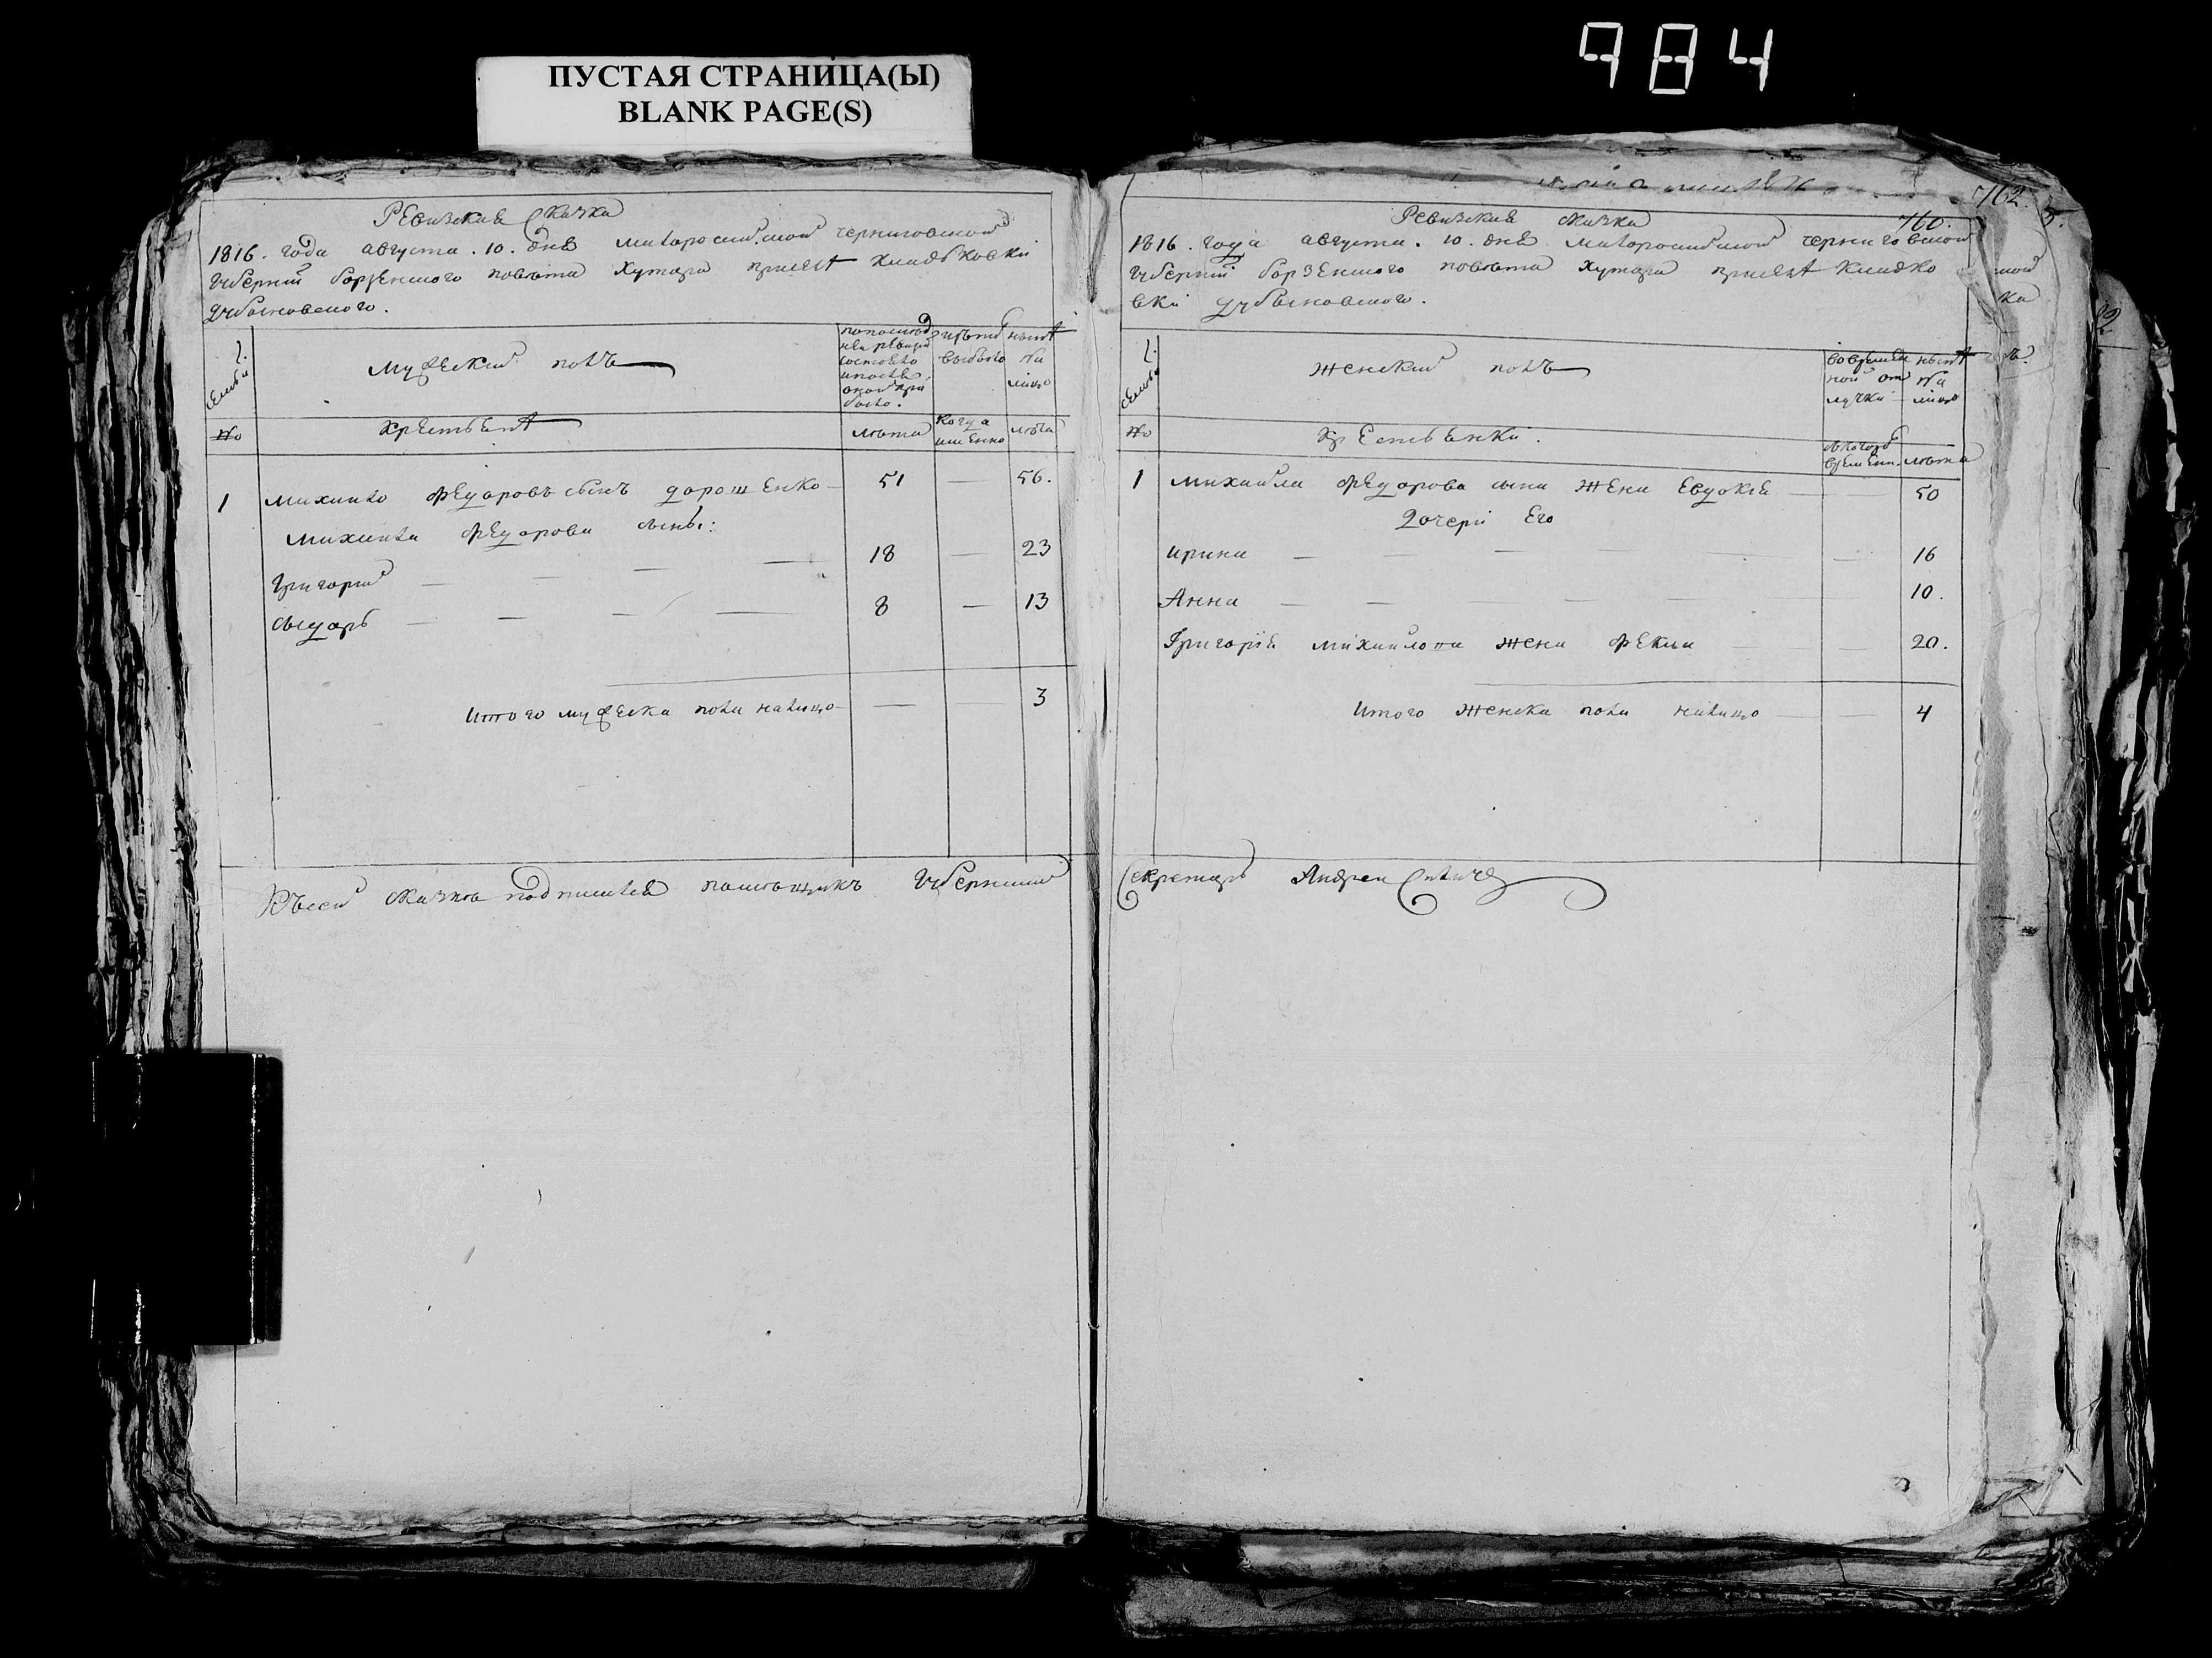 ПУСТАЯ СТРАНИЦА(Ы)
BLANK PAGE(S)
984
762.
Ревизская сказка
1816. года августа. 10. дня малоросийской черниговской
губернии борзенского повѣта хутора при селѣ
семьи.
мужеский полъ
по последней ревизии состояло и после оной прибыло.
изътого выбыло
нынѣ на лицо
№
хрестьянѣ
лѣта
когда именно
лѣта
1 михаило федоровъ сынъ дорошенко — 51 — 56.
михаила федорова сыны:
григорий — 18 — 23
сыдоръ — 8 — 13
итого мужеска пола налицо — — — 3
къ сей сказке подписался помѣщикъ губернский
760.
Ревизская сказка
1816. года августа. 10. дня малоросийской черниговской
губернии борзенского повѣта хутора при селѣ
семьи.
женский полъ
во временной отлучке
нынѣ на лицо
№
хрестьянки.
съ которого времени
лѣта
1 михайла федорова сына жена евдокия — — 50
дочери его
ирина — — 16
Анна — — 10.
Григория михайлова жена фекла — — 20.
итого женска пола налицо — — 4
Секретарь Андреи